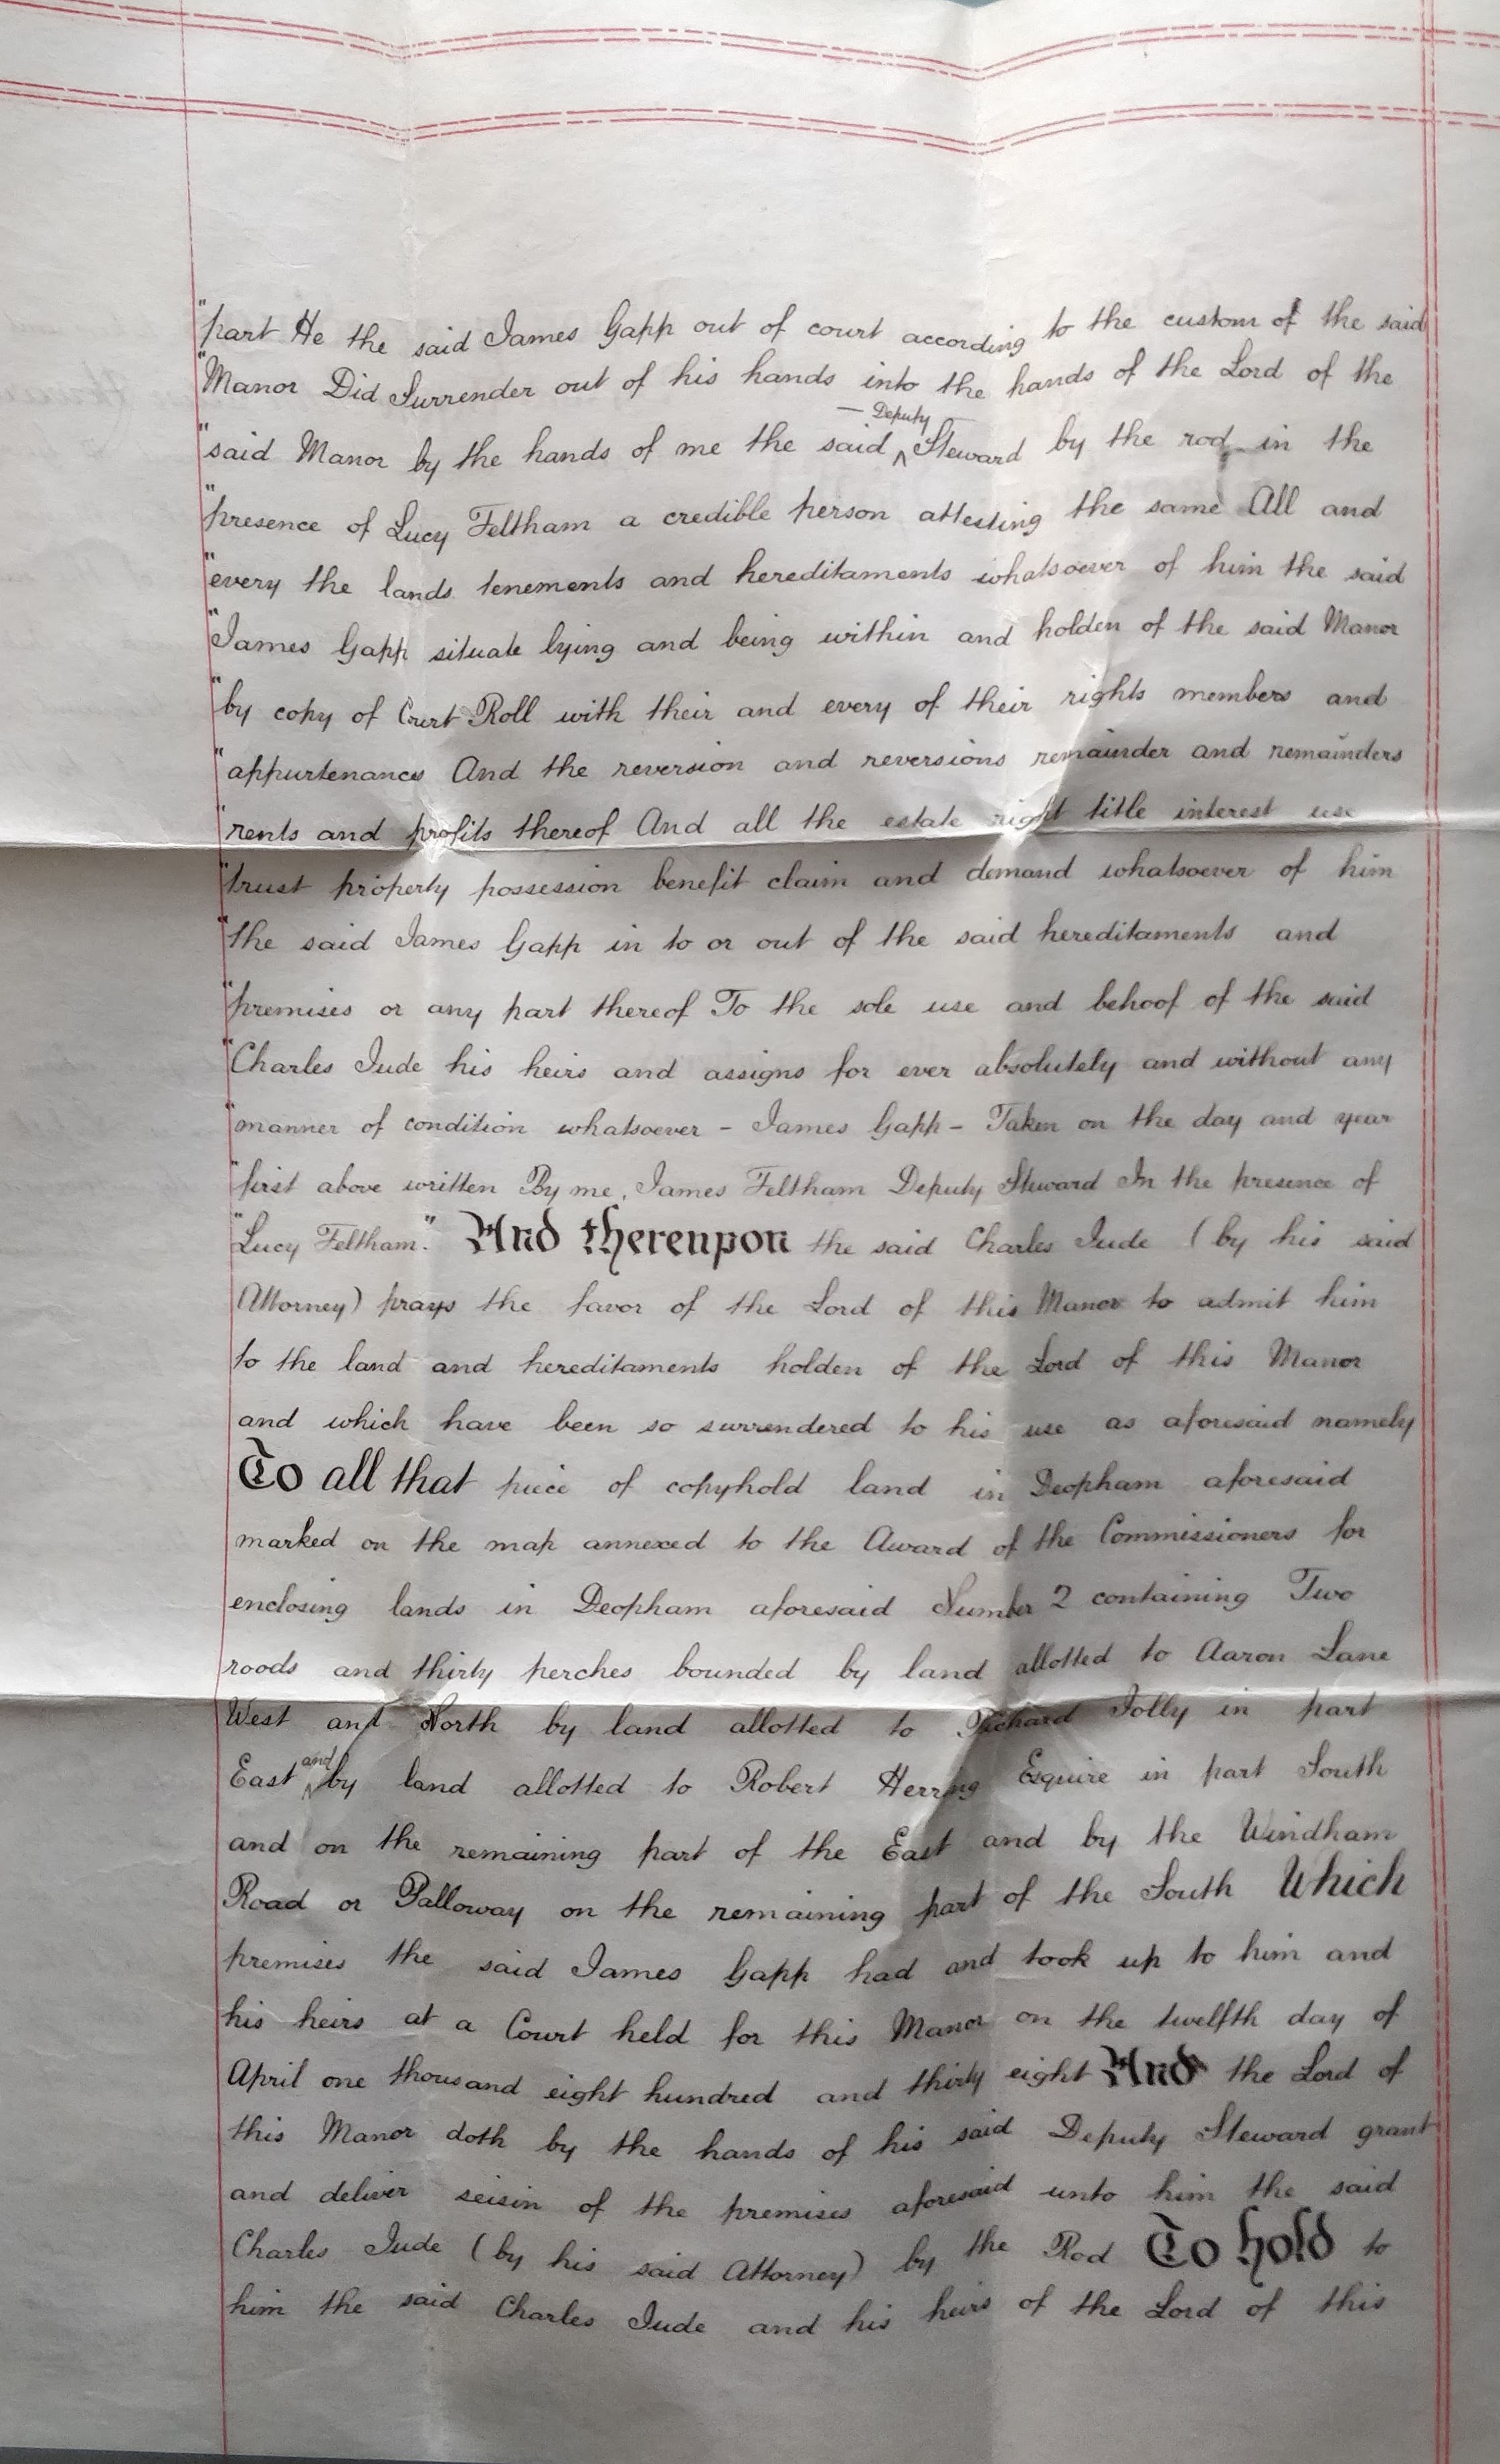 "part He the said James Gapp out of court according to the custom of the said
"Manor Did Surrender out of his hands into the hands of the Lord of the
"said Manor by the hands of me the said ^ — Deputy Steward by the rod in the
"presence of Lucy Feltham a credible person attesting the same All and
"every the lands tenements and hereditaments whatsoever of him the said
"James Gapp situate lying and being within and holden of the said Manor
"by copy of Court Roll with their and every of their rights members and
"appurtenances And the reversion and reversions remainder and remainders
"rents and profits thereof And all the estate right title interest use
"trust property possession benefit claim and demand whatsoever of him
"the said James Gapp in to or out of the said hereditaments and
"premises or any part thereof To the sole use and behoof of the said
"Charles Jude his heirs and assigns for ever absolutely and without any
"manner of condition whatsoever – James Gapp – Taken on the day and year
"first above written By me, James Feltham Deputy Steward In the presence of
"Lucy Feltham." And thereupon the said Charles Jude (by his said
Attorney) prays the favor of the Lord of this Manor to admit him
to the land and hereditaments holden of the Lord of this Manor
and which have been so surrendered to his use as aforesaid namely
To all that piece of copyhold land in Deopham aforesaid
marked on the map annexed to the Award of the Commissioners for
enclosing lands in Deopham aforesaid Number 2 containing Two
roods and thirty perches bounded by land allotted to Aaron Lane
West and North by land allotted to Richard Jolly in part
East ^ and by land allotted to Robert Herring Esquire in part South
and on the remaining part of the East and by the Windham
Road or Palloway on the remaining part of the South Which
premises the said James Gapp had and took up to him and
his heirs at a Court held for this Manor on the twelfth day of
April one thousand eight hundred and thirty eight And the Lord of
this Manor doth by the hands of his said Deputy Steward grant
and deliver seisin of the premises aforesaid unto him the said
Charles Jude (by his said Attorney) by the Rod To hold to
him the said Charles Jude and his heirs of the Lord of this